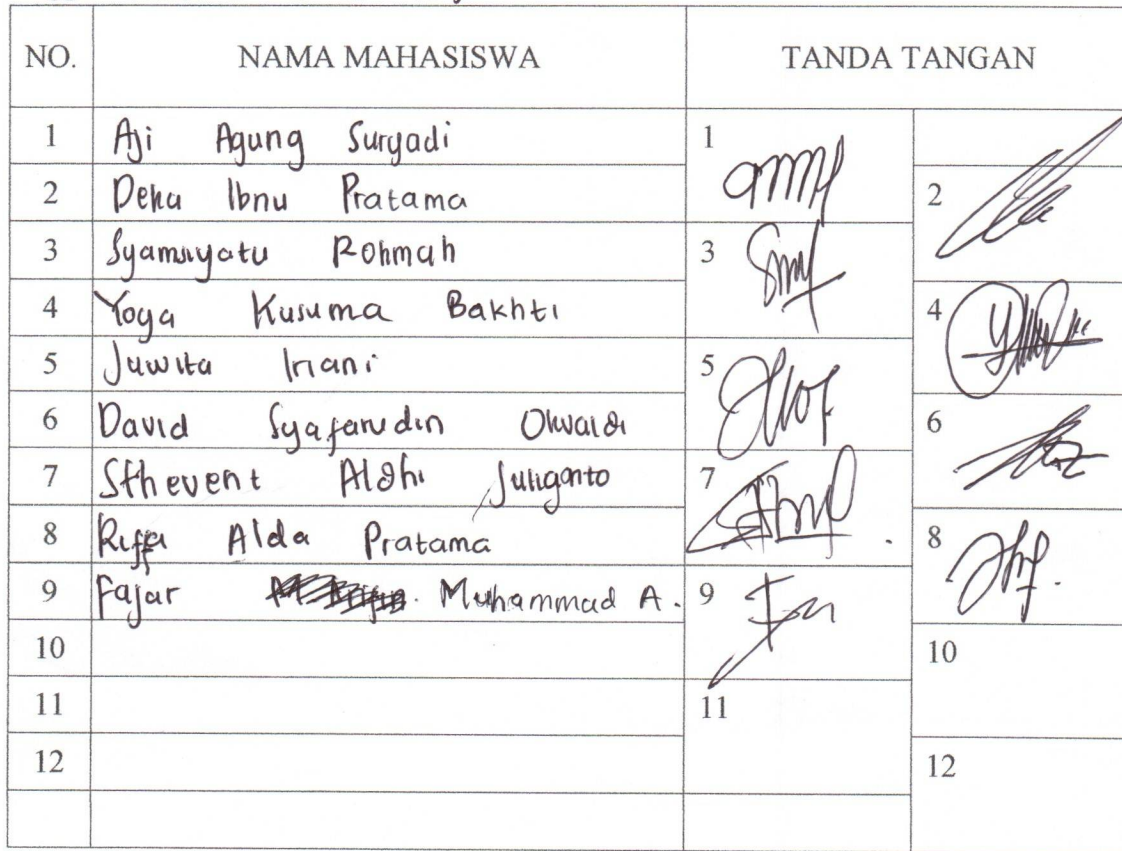 NO. NAMA MAHASISWA TANDA TANGAN
1 Aji Agung Suryadi 1
2 Deka Ibnu Pratama 2
3 Syamsiyatu Rohmah 3
4 Yoga Kusuma Bakhti 4
5 Juwita Iriani 5
6 David Syafarudin 6
7 Sthevent Aldhi Juliganto 7
8 Riffa Alda Pratama 8
9 Fajar Muhammad A. 9
10 10
11 11
12 12